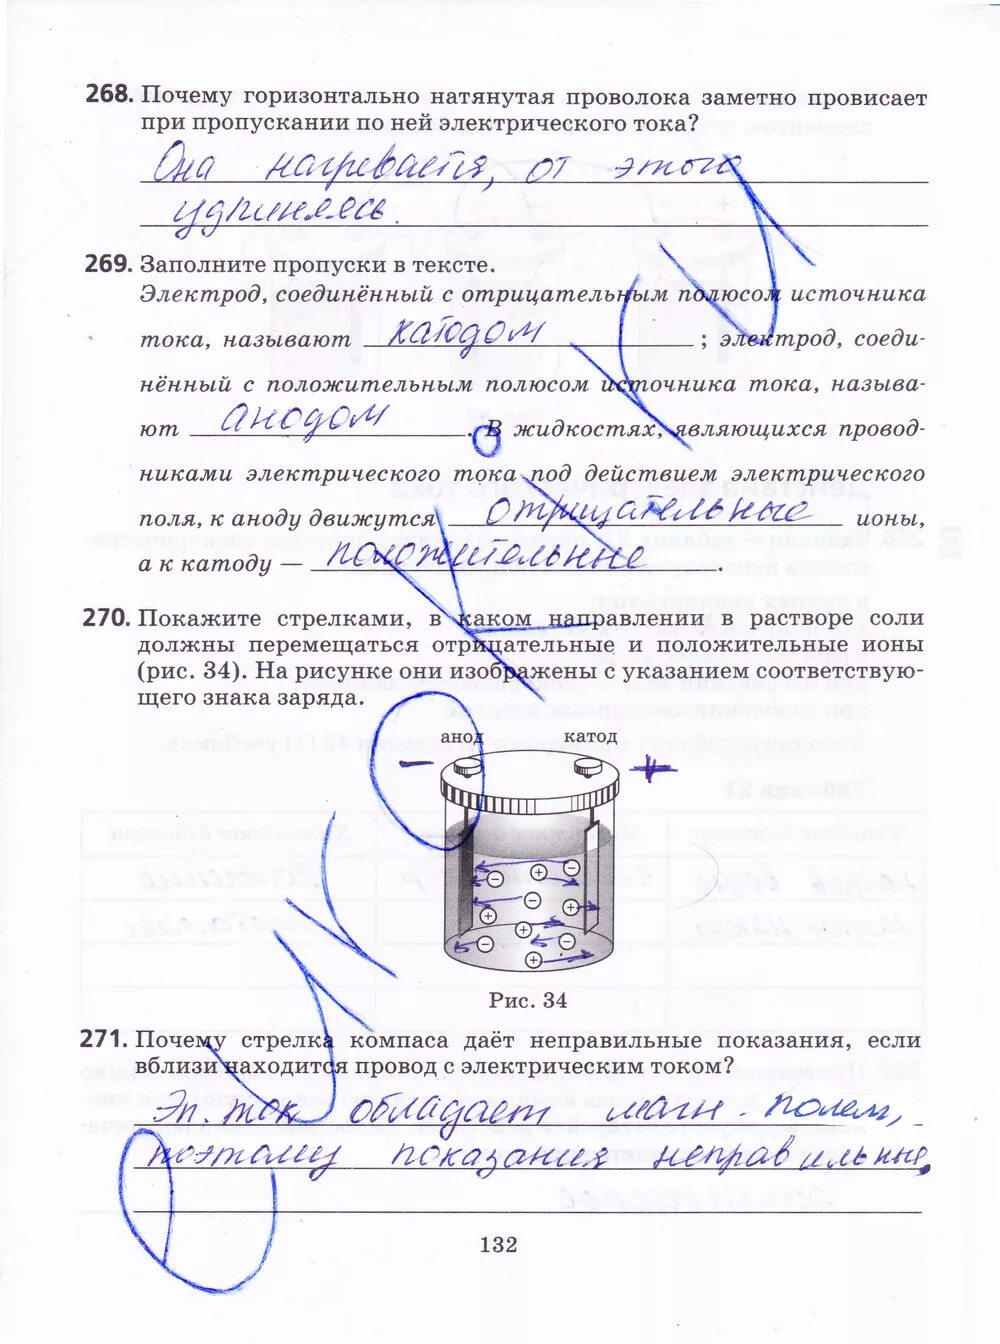 268. Почему горизонтально натянутая проволока заметно провисает
при пропускании по ней электрического тока?
Она нагревается, от этого
удлиняясь.
269. Заполните пропуски в тексте.
Электрод, соединённый с отрицательным полюсом источника
тока, называют катодом ; электрод, соеди-
нённый с положительным полюсом источника тока, называ-
ют анодом . В жидкостях, являющихся провод-
никами электрического тока под действием электрического
поля, к аноду движутся отрицательные ионы,
а к катоду — положительные .
270. Покажите стрелками, в каком направлении в растворе соли
должны перемещаться отрицательные и положительные ионы
(рис. 34). На рисунке они изображены с указанием соответствую-
щего знака заряда.
анод катод
− +
− + −
− +
+ −
− +
Рис. 34
271. Почему стрелка компаса даёт неправильные показания, если
вблизи находится провод с электрическим током?
Эл ток обладает магн - полем,
поэтому показания неправильные.
132